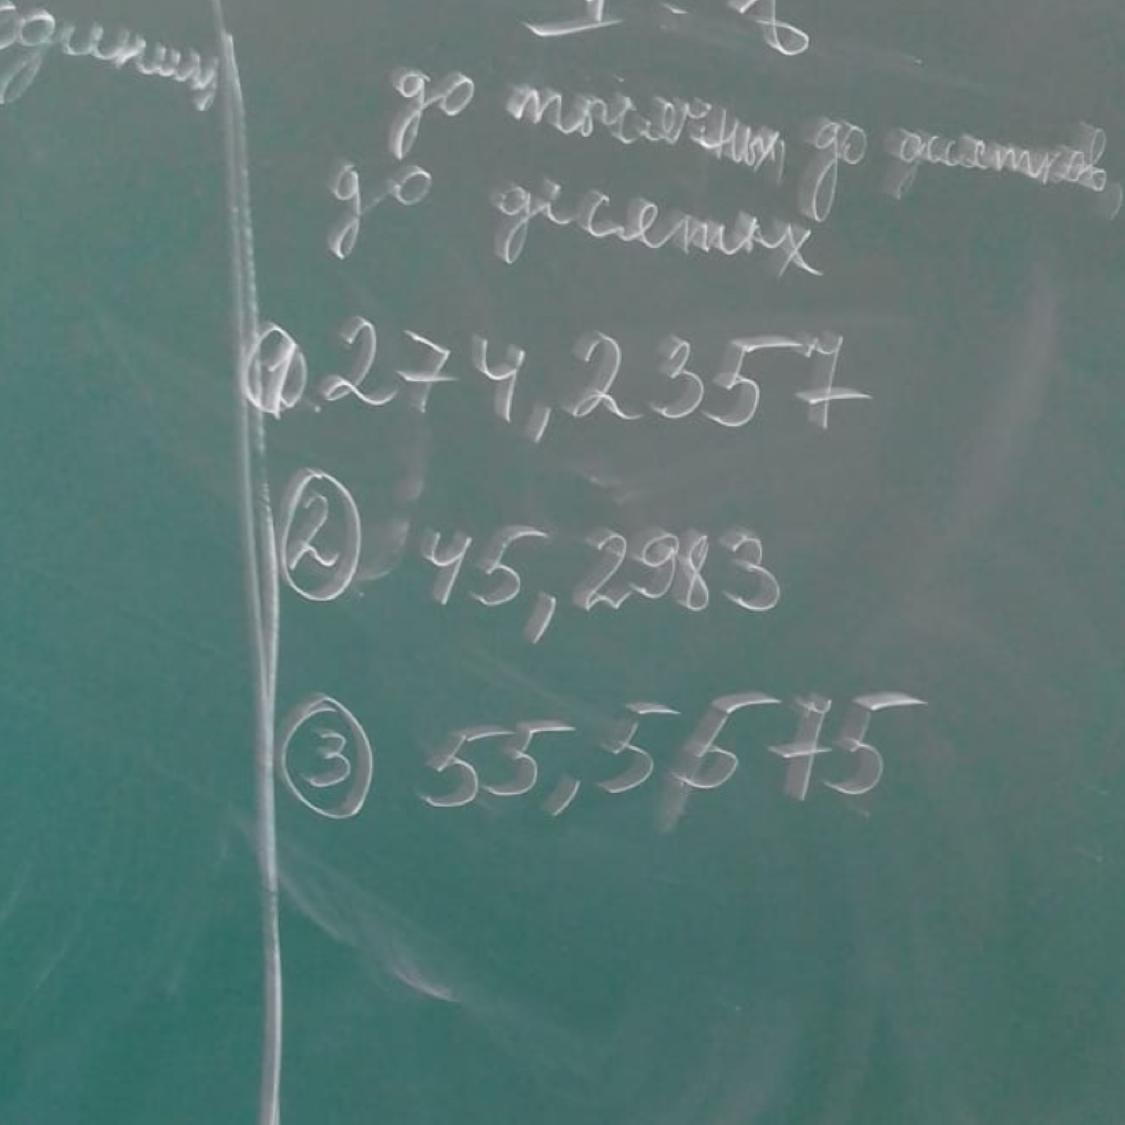 одиниц
I - в
до тисячних, до десятків,
до дісятих
① 274,2357
② 45,2983
③ 55,5675